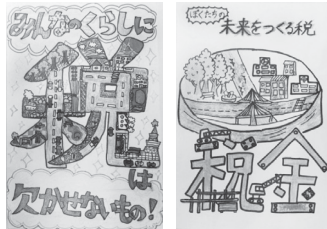 みんなのくらしに
税
は
欠かせないもの!
ぼくたちの
未来をつくる税
税金